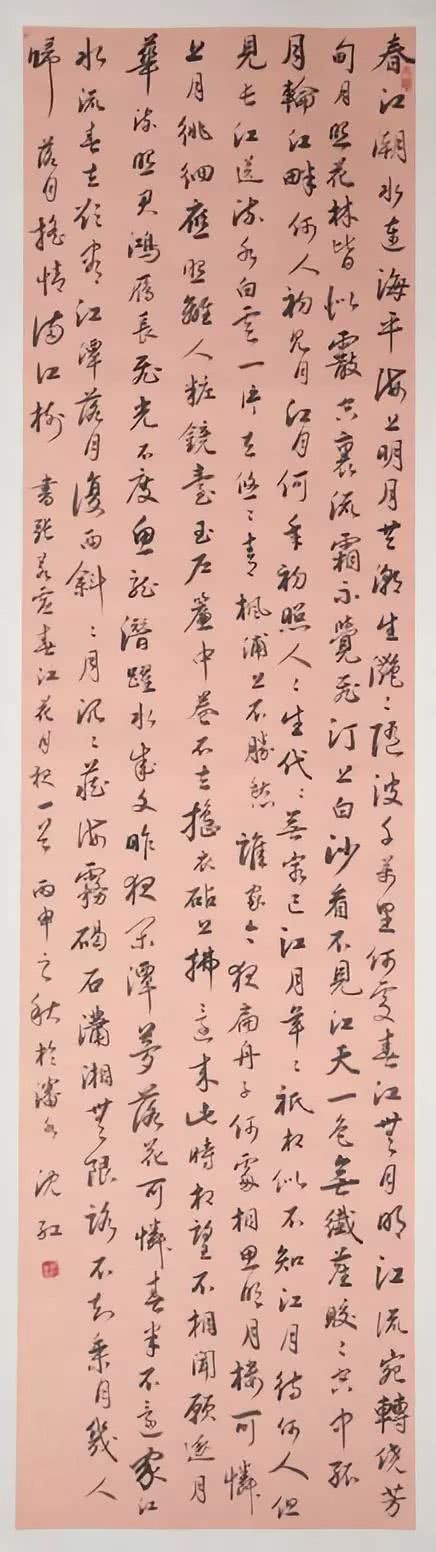 春江潮水連海平海上明月共潮生灧〻隨波千萬里何處春江無月明江流宛轉繞芳
甸月照花林皆似霰空裏流霜不覺飛汀上白沙看不見江天一色無纖塵皎〻空中孤
月輪江畔何人初見月江月何年初照人〻生代〻無窮已江月年〻祇相似不知江月待何人但
見長江送流水白雲一片去悠〻青楓浦上不勝愁誰家今夜扁舟子何處相思明月樓可憐
上月徘徊應照離人粧鏡臺玉戶簾中卷不去搗衣砧上拂還來此時相望不相聞願逐月
華流照君鴻雁長飛光不度魚龍潛躍水成文昨夜閑潭夢落花可憐春半不還家江
水流春去欲盡江潭落月復西斜〻月沉〻藏海霧碣石瀟湘無限路不知乘月幾人
歸落月搖情滿江樹 書張若虛春江花月夜一首 丙申之秋於瀋水 沈紅